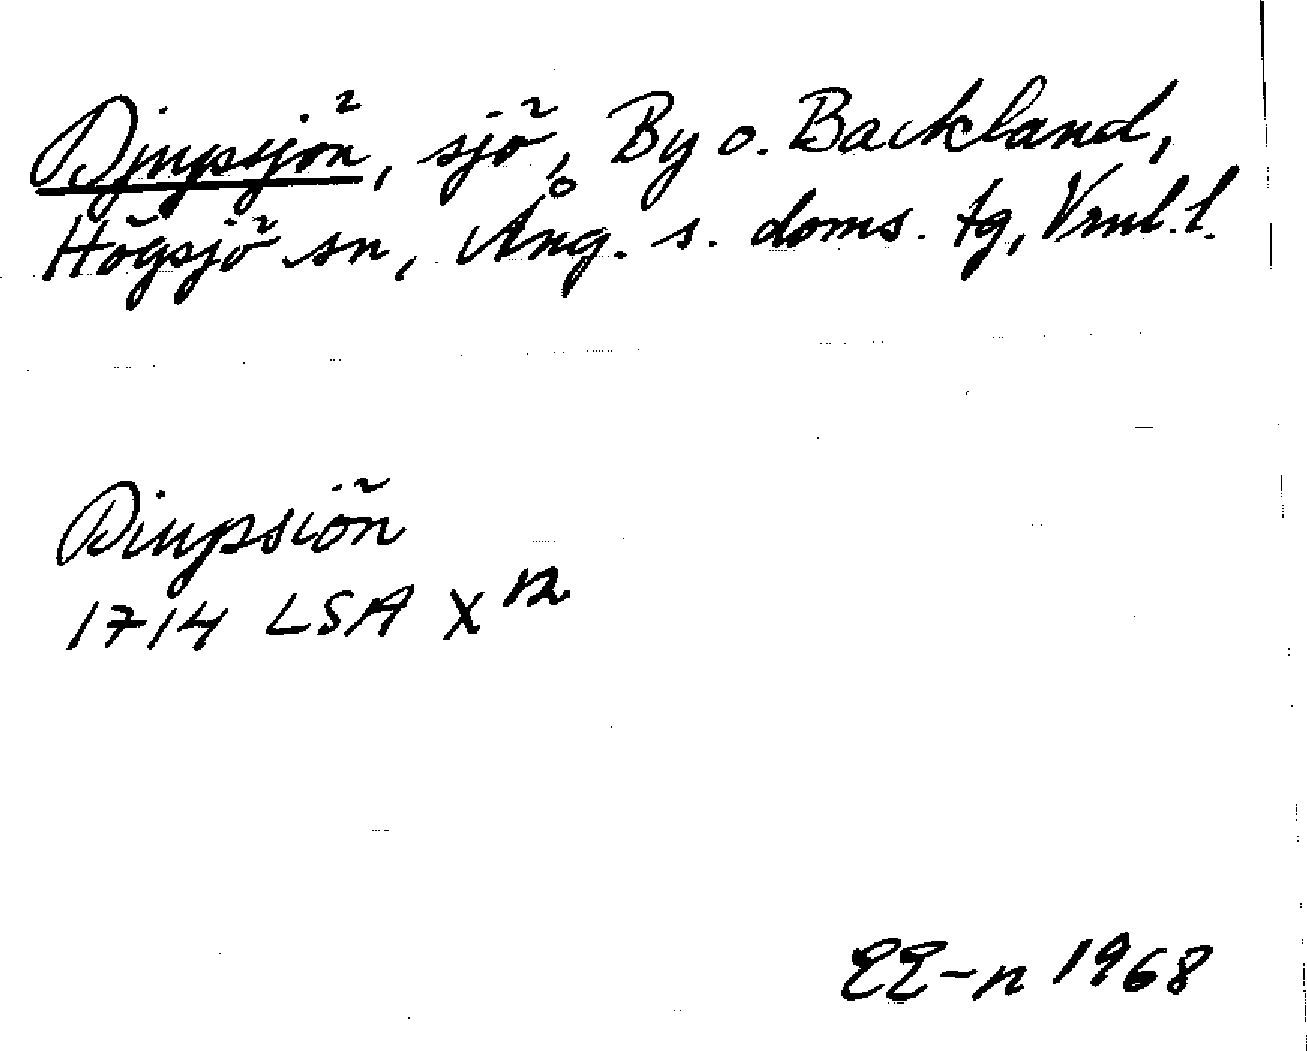 Djupsjön, sjö, By o. Backland,
Högsjö sn, Ång. s. doms. tg, Vrnl. l.
Diupsiön
1714 LSA X 12
EE-n 1968